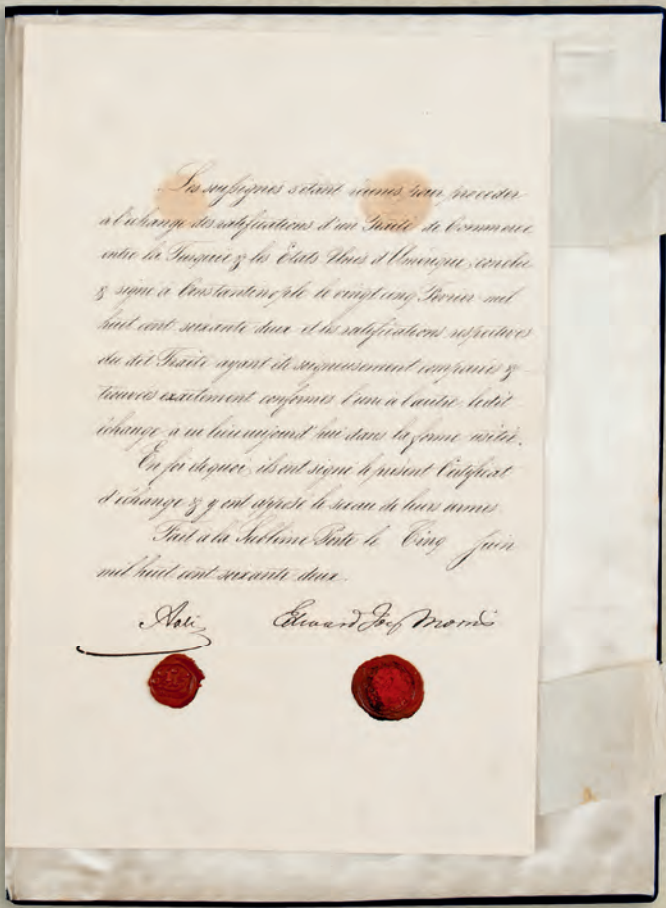 Les soussignés s'étant réunis pour procéder
à l'échange des ratifications d'un Traité de Commerce
entre la Turquie & les Etats Unis d'Amérique, conclu
& signé à Constantinople le vingt cinq Février mil
huit cent soixante deux et les ratifications respectives
du dit Traité ayant été soigneusement comparées &
trouvées exactement conformes l'une à l'autre, le dit
échange a eu lieu aujourd'hui dans la forme usitée.
En foi de quoi, ils ont signé le présent Certificat
d'échange & y ont apposé le sceau de leurs armes.
Fait à la Sublime Porte le Cinq Juin
mil huit cent soixante deux.
Aali Edward Joy Morris